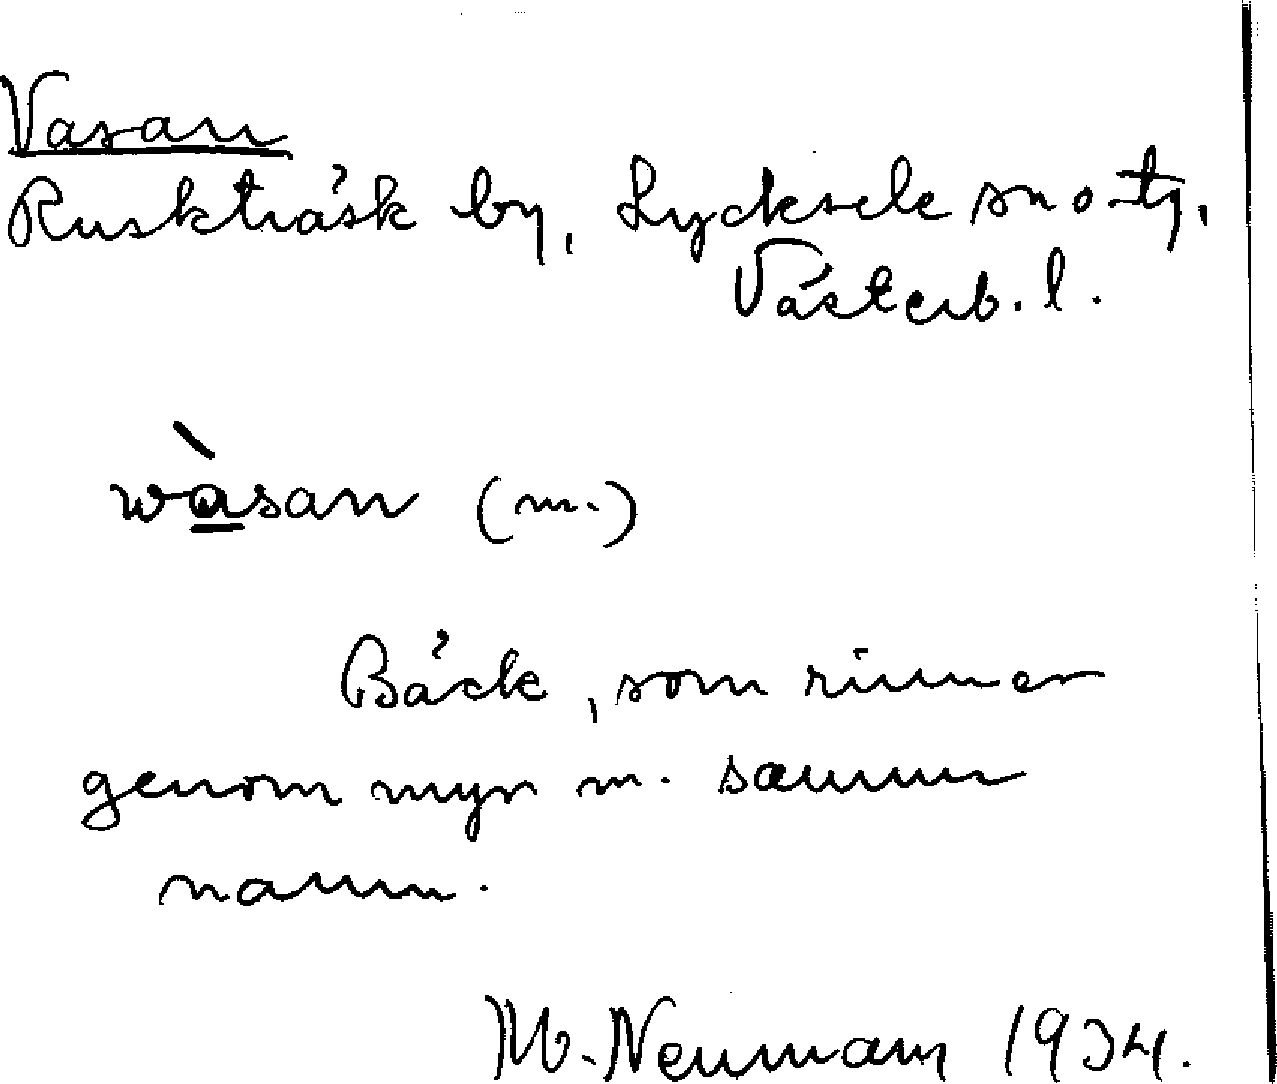 Vasan
Ruskträsk by, Lycksele sn o. tg,
Västerb. l.
wàsan (m.)
Bäck, som rinner
genom myr m. samma
namn.
M. Neumann 1934.